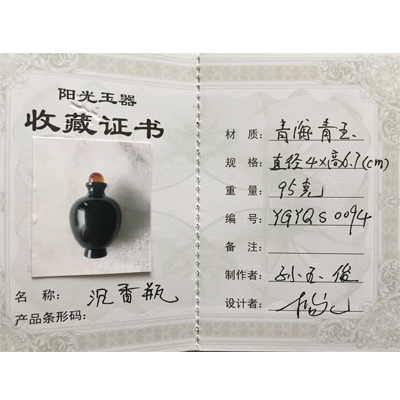 阳光玉器
收藏证书
名称：沉香瓶
产品条形码：
材质：青海青玉
规格：直径4×高6.7(cm)
重量：95克
编号：YGYQS0094
备注：
制作者：孙玉俊
设计者：